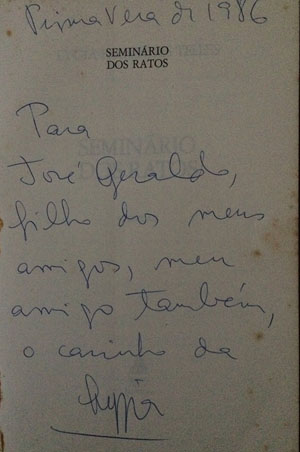 Primavera di 1986
SEMINÁRIO
DOS RATOS
Para
José Geraldo,
filho dos meus
amigos, meu
amigo também,
o carinho da
Lygia